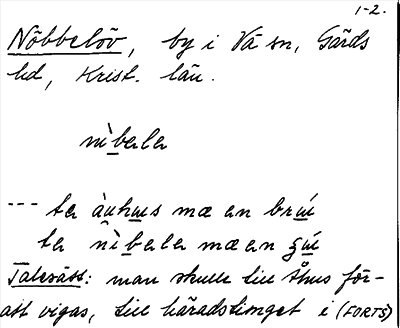 1-2.
Nöbbelöv, by i Vä sn, Gärds
hd, Krist. län.
nìbala
--- ta àuhus mæ en brú
ta nìbala mæ en gú
Talesätt: man skulle till Åhus för-
att vigas, till häradstinget i (FORTS)